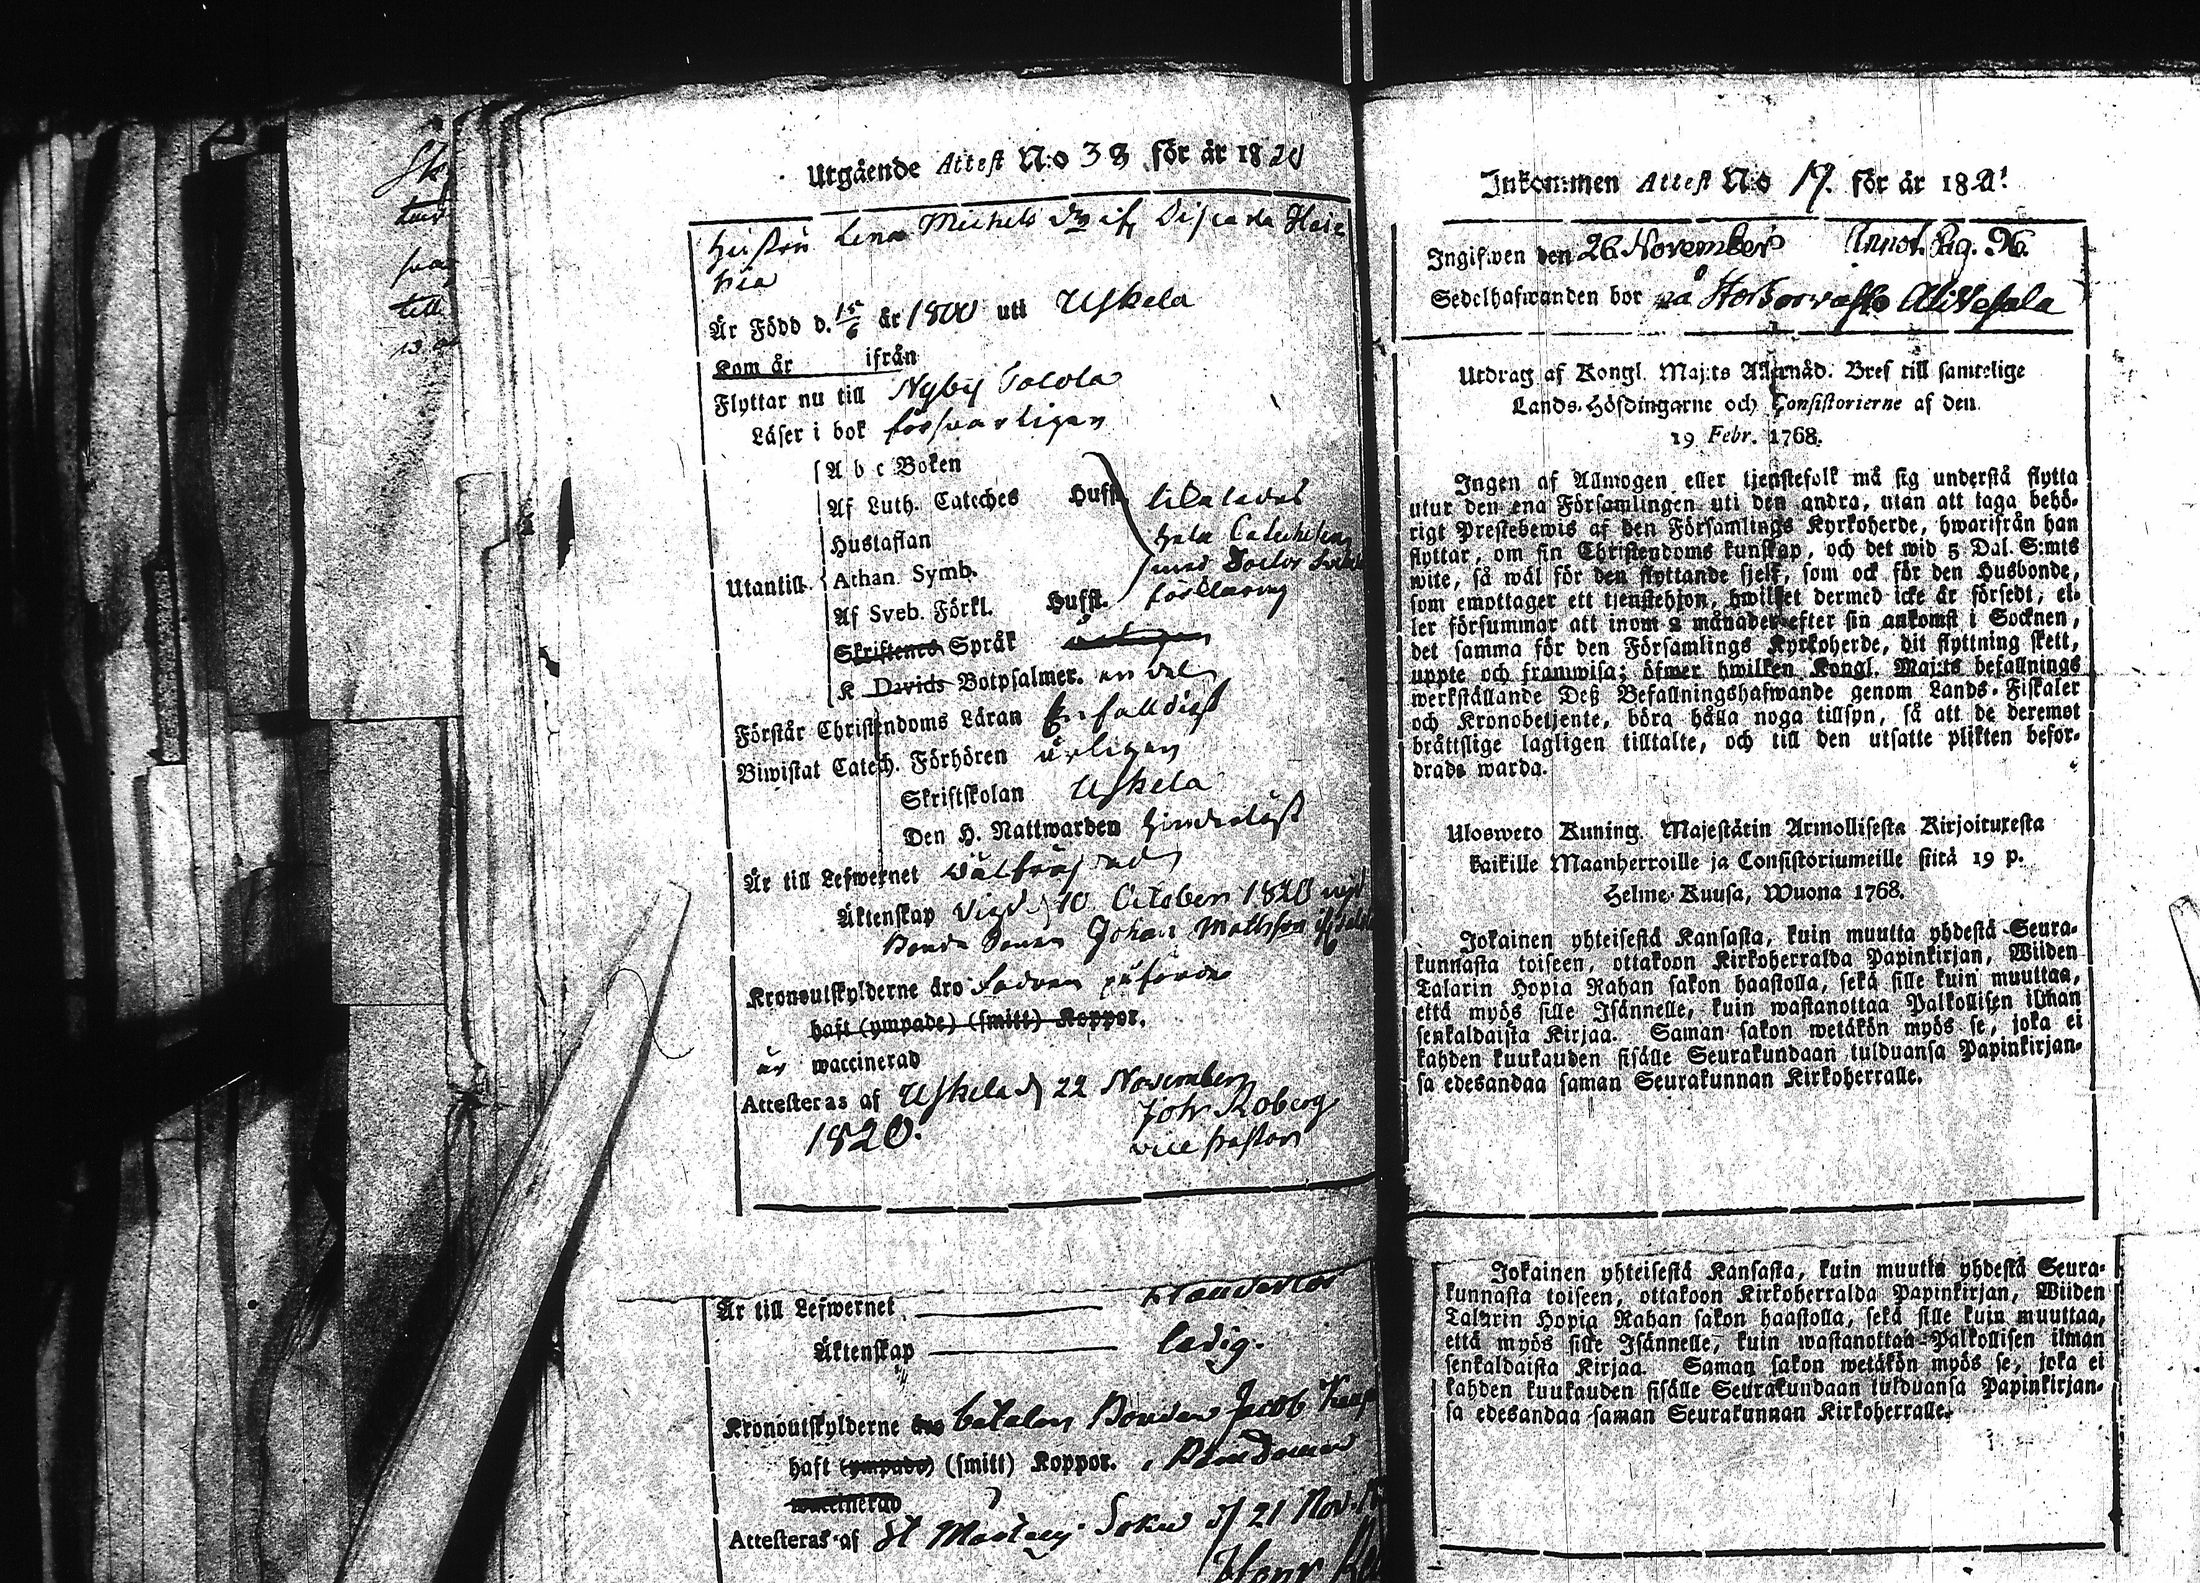 Utgående Attest N:o 38 för år 1820
Hustru Lena Michels dr if
är Född d. 15/6 år 1800 uti Uskela
Kom år ifrån
Flyttar nu till Nyby
Läser i bok försvarligen
A b c Boken
Af Luth. Cateches Hufst.
Hustaflan hela Catechesen
Utantill. Athan. Symb. med
Af Sveb. Förkl. Hufst. förklaring
Skriftenes Språk
K Davids Botpsalmer. en del
Förstår Christendoms Läran Enfalldigt
Biwistat Catech. Förhören årligen
Skriftskolan Uskela
Den H. Nattwarden hinderlöst
Är till Lefwernet wälfräjdad
Äktenskap Vigd d 10 October 1820 med
Bonde Sonen Johan Mathsson
Kronoutskylderne äro
haft (ympade) (smitt) Koppor.
är waccinerad
Attesteras af Uskela d 22 November
1820. Joh. Roberg
vice pastor
Är till Lefwernet
Äktenskap ledig.
Kronoutskylderne äro betalar Bonden Jacob
haft (ympade) (smitt) Koppor.
waccinerad
Attesteras af St Mårtens Sokn d 21 Nov.
Henr
Inkommen Attest N:o 17. för år 182
Ingifwen den 26 November Annot. Pag. 96.
Sedelhafwanden bor på
Utdrag af Kongl. Maj:ts Allernåd. Bref till samtelige
Lands-Höfdingarne och Consistorierne af den
19 Febr. 1768.
Ingen af Allmogen eller tjenstefolk må sig understå flytta
utur den ena Församlingen uti den andra, utan att taga behö-
rigt Prestebewis af den Församlings Kyrkoherde, hwarifrån han
flyttar, om sin Christendoms kunskap, och det wid 5 Dal. S:mts
wite, så wäl för den flyttande sjelf, som ock för den Husbonde,
som emottager ett tjenstehjon, hwilket dermed icke är försedt, el-
ler försummar att inom 2 månader efter sin ankomst i Socknen,
det samma för den Församlings Kyrkoherde, dit flyttning skett,
uppte och framwisa; öfwer hwilken Kongl. Maj:ts befallnings
werkställande Deß Befallningshafwande genom Lands-Fiskaler
och Kronobetjente, böra hålla noga tillsyn, så att de deremot
bråttslige lagligen tilltalte, och till den utsatte plikten befor-
drade warda.
Ulosweto Kuning. Majestätin Armollisesta Kirjoituxesta
kaikille Maanherroille ja Consistoriumeille siitä 19 p.
Helme-Kuusa, Wuona 1768.
Jokainen yhteisestä Kansasta, kuin muutta yhdestä Seura-
kunnasta toiseen, ottakoon Kirkoherralda Papinkirjan, Wiiden
Talarin Hopia Rahan sakon haastolla, sekä sille kuin muuttaa,
että myös sille Isännelle, kuin wastanottaa Palkollisen ilman
senkaldaista Kirjaa. Saman sakon wetäkön myös se, joka ei
kahden kuukauden sisälle Seurakundaan tulduansa Papinkirjan-
sa edesandaa saman Seurakunnan Kirkoherralle.
Jokainen yhteisestä Kansasta, kuin muutta yhdestä Seura-
kunnasta toiseen, ottakoon Kirkoherralda Papinkirjan, Wiiden
Talarin Hopia Rahan sakon haastolla, sekä sille kuin muuttaa,
että myös sille Isännelle, kuin wastanottaa Palkollisen ilman
senkaldaista Kirjaa. Saman sakon wetäkön myös se, joka ei
kahden kuukauden sisälle Seurakundaan tulduansa Papinkirjan-
sa edesandaa saman Seurakunnan Kirkoherralle.